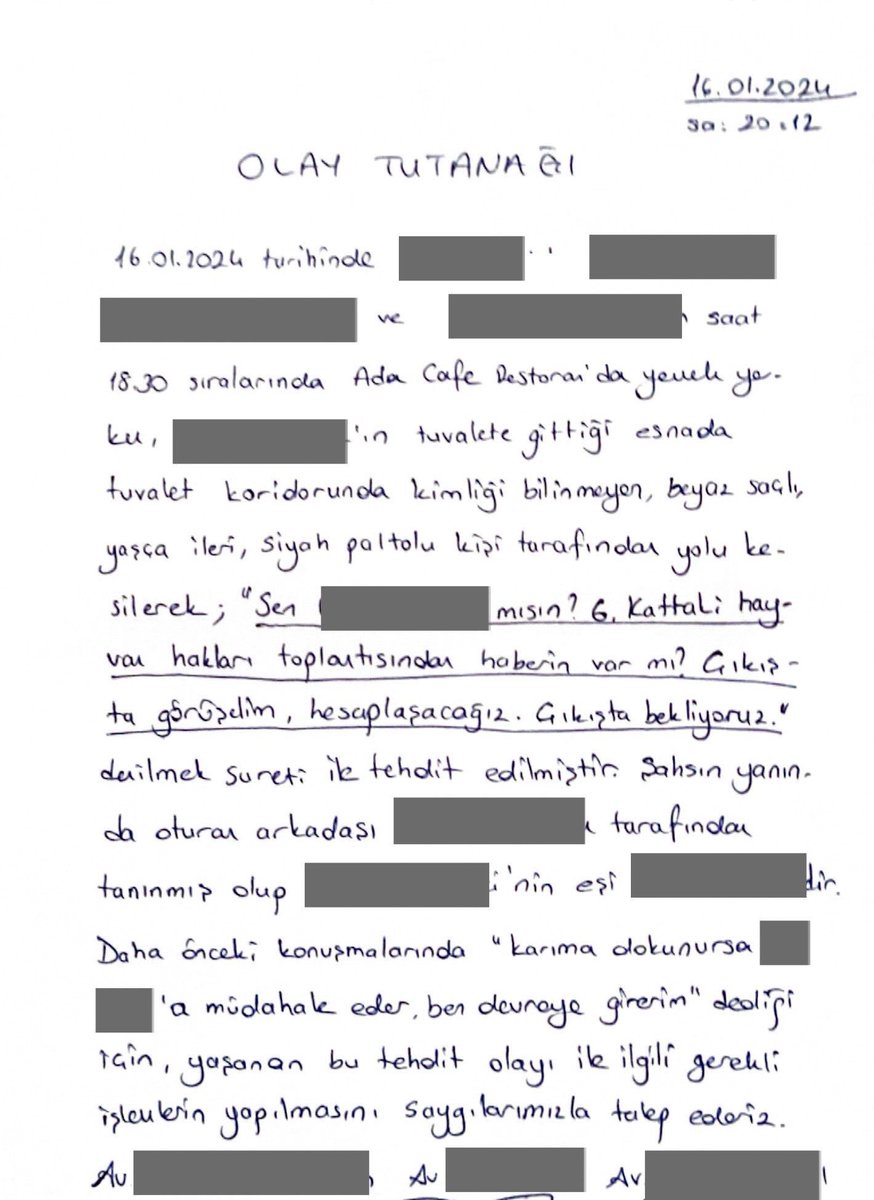 16.01.2024
sa: 20.12
OLAY TUTANAĞI
16.01.2024 tarihinde
ve saat
18.30 sıralarında Ada Cafe Restoran'da yemek ye-
ku, 'ın tuvalete gittiği esnada
tuvalet koridorunda kimliği bilinmeyen, beyaz saçlı,
yaşça ileri, siyah paltolu kişi tarafından yolu ke-
silerek; "Sen mısın? 6. Kattali hay-
van hakları toplantısından haberin var mı? Çıkış-
ta görüşelim, hesaplaşacağız. Çıkışta bekliyoruz."
denilmek sureti ile tehdit edilmiştir. Şahsın yanın-
da oturan arkadaşı tarafından
tanınmış olup i'nin eşi dir.
Daha önceki konuşmalarında "karıma dokunursa
'a müdahale eder, ben devreye girerim" dediği
için, yaşanan bu tehdit olayı ile ilgili gerekli
işlemlerin yapılmasını saygılarımızla talep ederiz.
Av Av Av